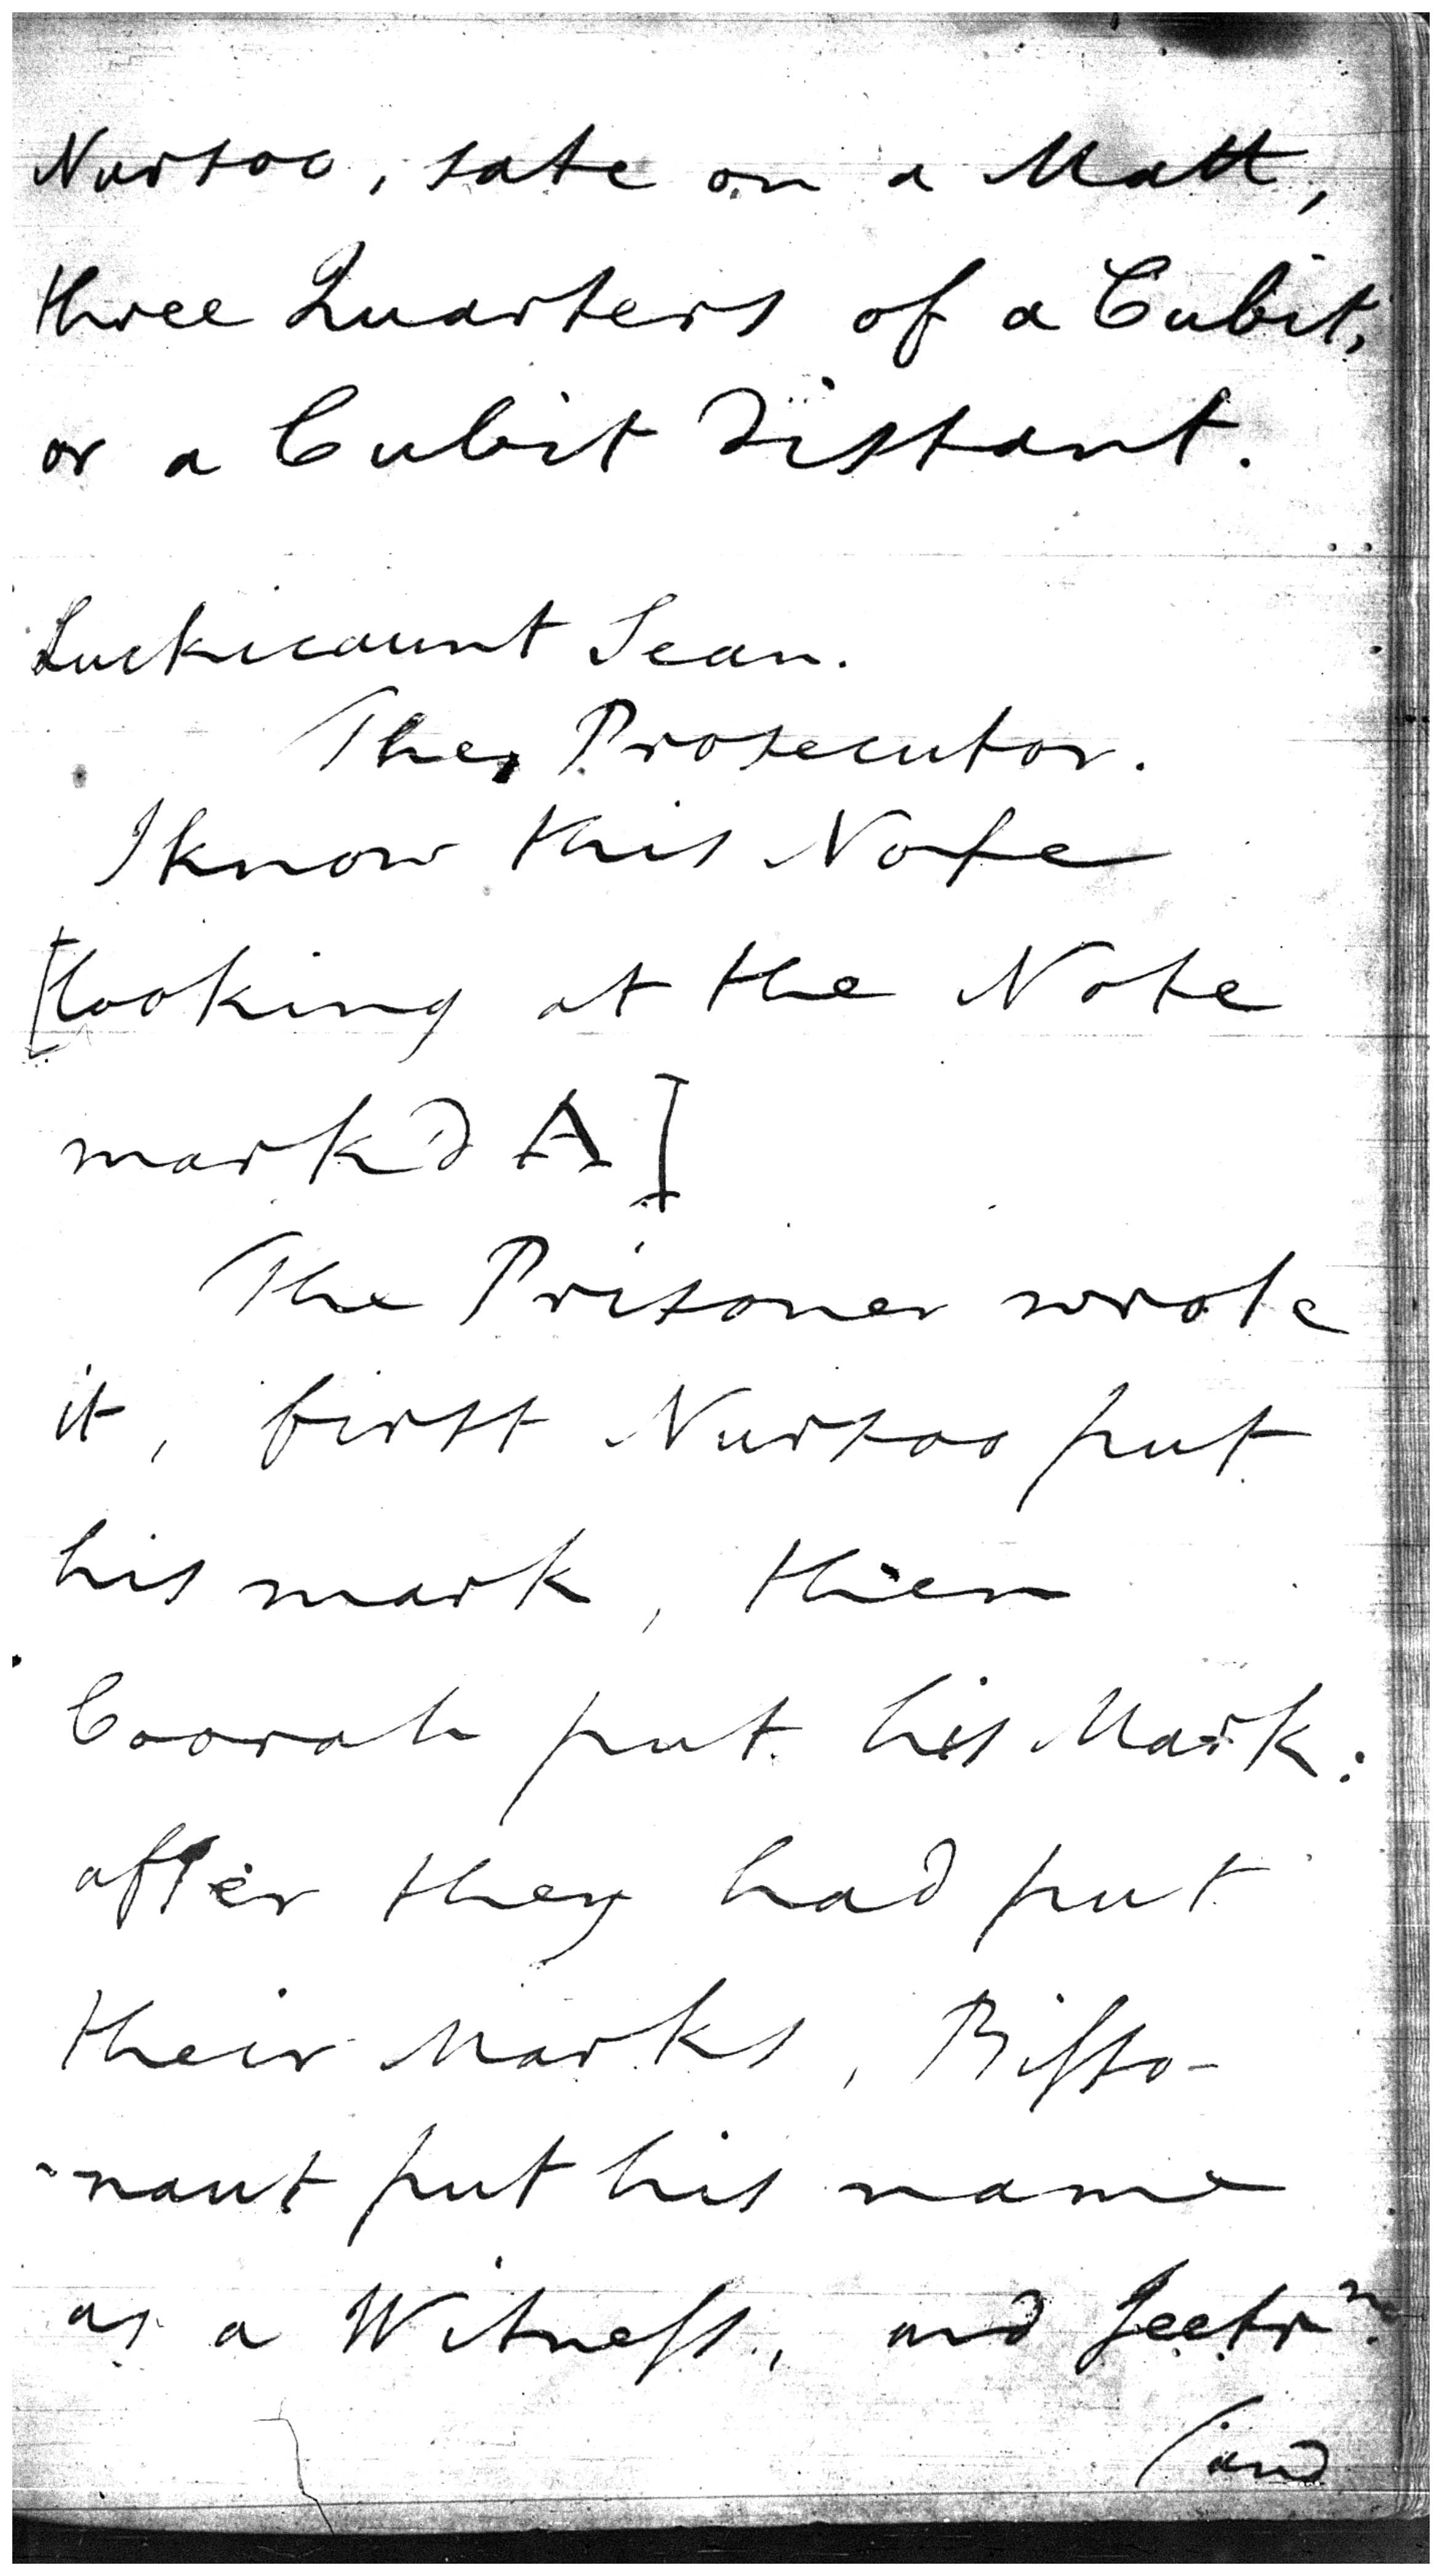 Nursoo, sate on a Matt,
three Quarters of a Cubit,
or a Cubit Distant.
Luckicaunt Sean.
The Prosecutor.
I know this Note
[looking at the Note
mark'd A]
The Prisoner wrote
it, first Nursoo put
his mark, then
Coorah put his Mark.
after they had put
their Marks, Bisso-
-naut put his name
as a Witness, and
(and